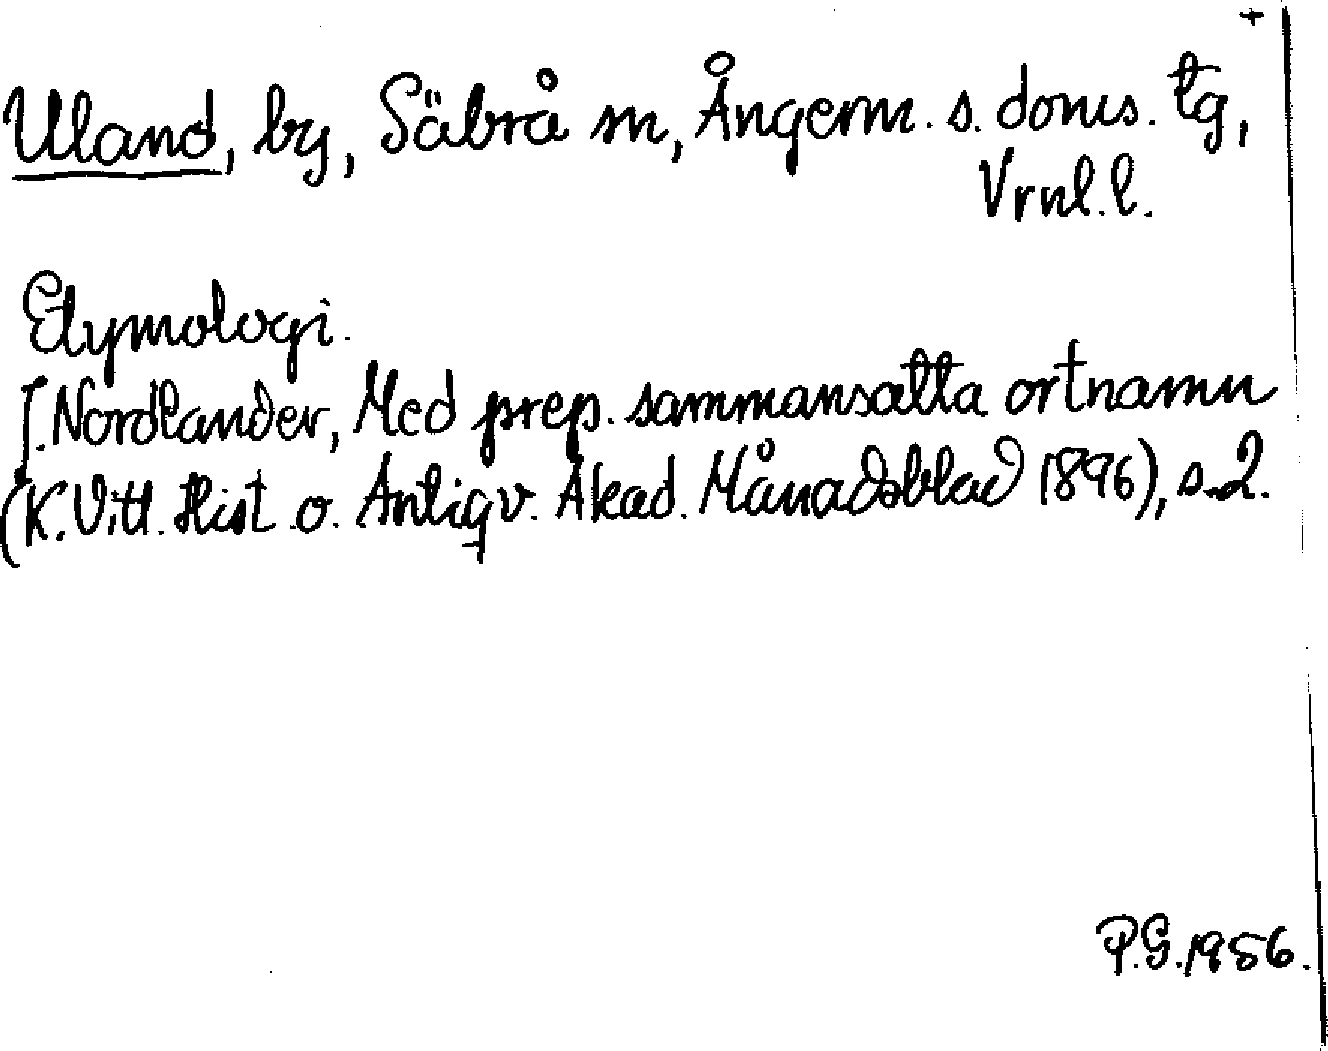 +
Uland, by, Säbrå sn, Ångerm. s. doms. tg,
Vrnl. l.
Etymologi.
J. Nordlander, Med prep. sammansatta ortnamn
(K. Vitt. Hist o. Antiqv. Akad. Månadsblad 1896), s. 2.
P.G. 1956.